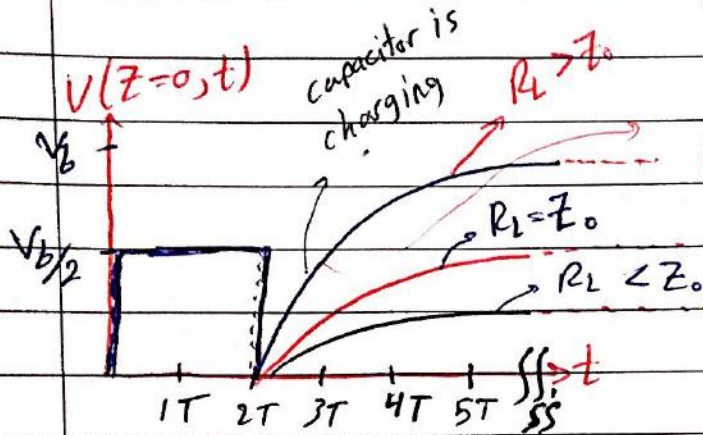 V(Z=0,t)
capacitor is
charging
R_L > Z_0
V_b
V_b/2
R_L = Z_0
R_L < Z_0
1T 2T 3T 4T 5T t